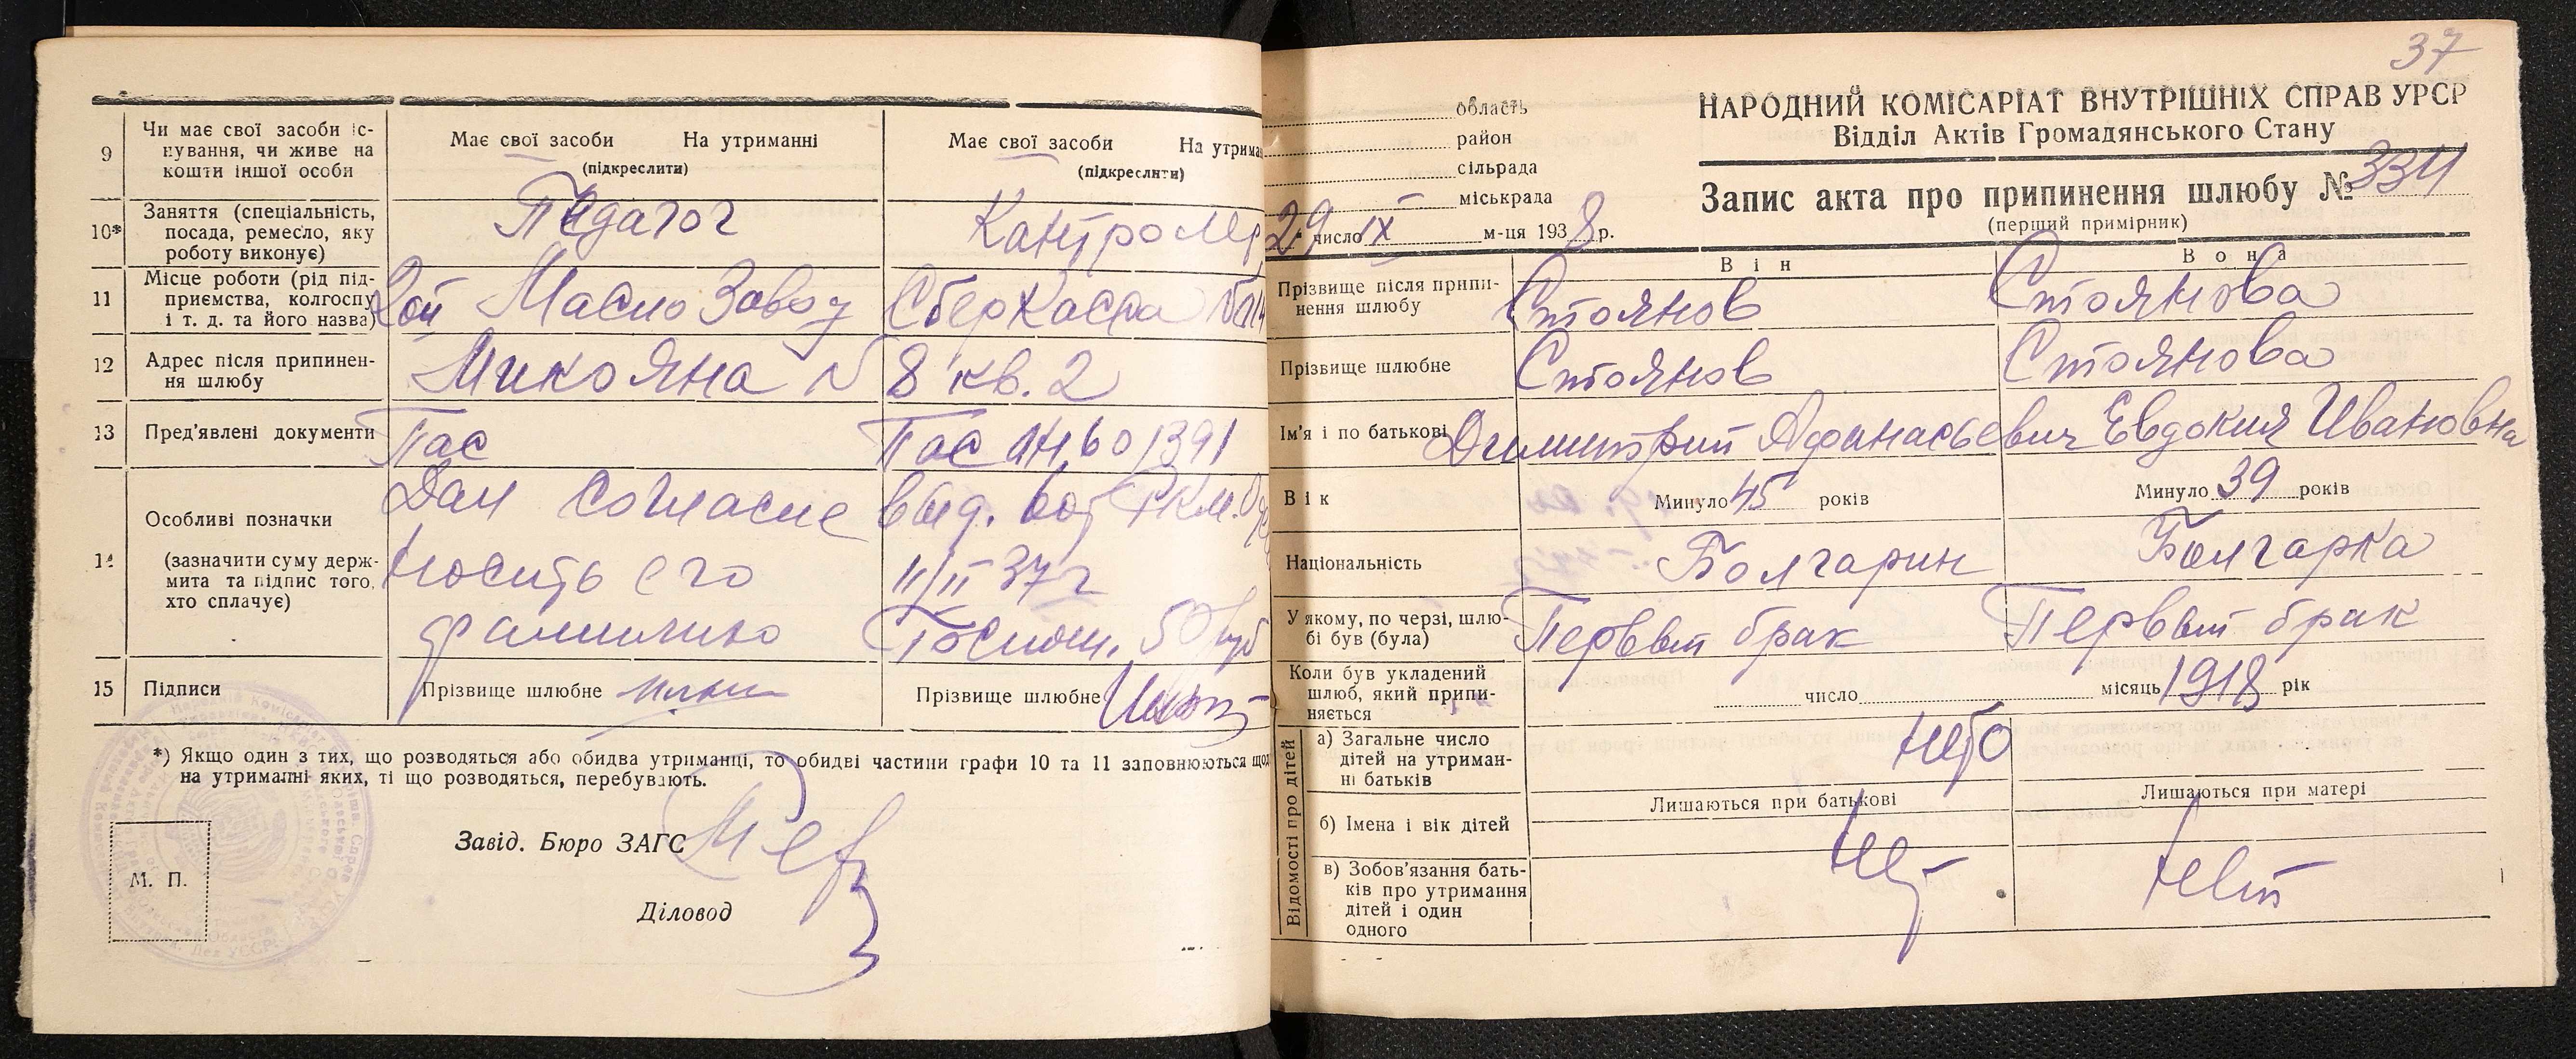 9 Чи має свої засоби іс-
нування, чи живе на
кошти іншої особи
Має свої засоби На утриманні
(підкреслити)
Має свої засоби На утрима
(підкреслити)
10* Заняття (спеціальність,
посада, ремесло, яку
роботу виконує)
Педагог
Кантролер
11 Місце роботи (рід під-
приємства, колгоспу
і т. д. та його назва)
Масло Завод
СберКасса
12 Адрес після припинен-
ня шлюбу
Микояна № 8 кв. 2
13 Пред'явлені документи
Пас
Пас
14 Особливі позначки
(зазначити суму держ-
мита та підпис того,
хто сплачує)
Дал согласие
носить его
фамилию
выд. РКМ.
11/II 37 г
Госпош. 50 руб
15 Підписи
Прізвище шлюбне
Прізвище шлюбне
*) Якщо один з тих, що розводяться або обидва утриманці, то обидві частини графи 10 та 11 заповнюються щод
на утриманні яких, ті що розводяться, перебувають.
Завід. Бюро ЗАГС
М. П.
Діловод
37
область
район
сільрада
міськрада
29 число IX м-ця 1938 р.
НАРОДНИЙ КОМІСАРІАТ ВНУТРІШНІХ СПРАВ УРСР
Відділ Актів Громадянського Стану
Запис акта про припинення шлюбу № 334
(перший примірник)
Він
Вона
Прізвище після припи-
нення шлюбу
Стоянов
Стоянова
Прізвище шлюбне
Стоянов
Стоянова
Ім'я і по батькові
Димитрий Афанасьевич
Евдокия Ивановна
Вік
Минуло 45 років
Минуло 39 років
Національність
Болгарин
Болгарка
У якому, по черзі, шлю-
бі був (була)
Первый брак
Первый брак
Коли був укладений
шлюб, який припи-
няється
число місяць 1918 рік
Відомості про дітей
а) Загальне число
дітей на утриман-
ні батьків
Лишаються при батькові
Лишаються при матері
б) Імена і вік дітей
в) Зобов'язання бать-
ків про утримання
дітей і один
одного
Нет
Нет